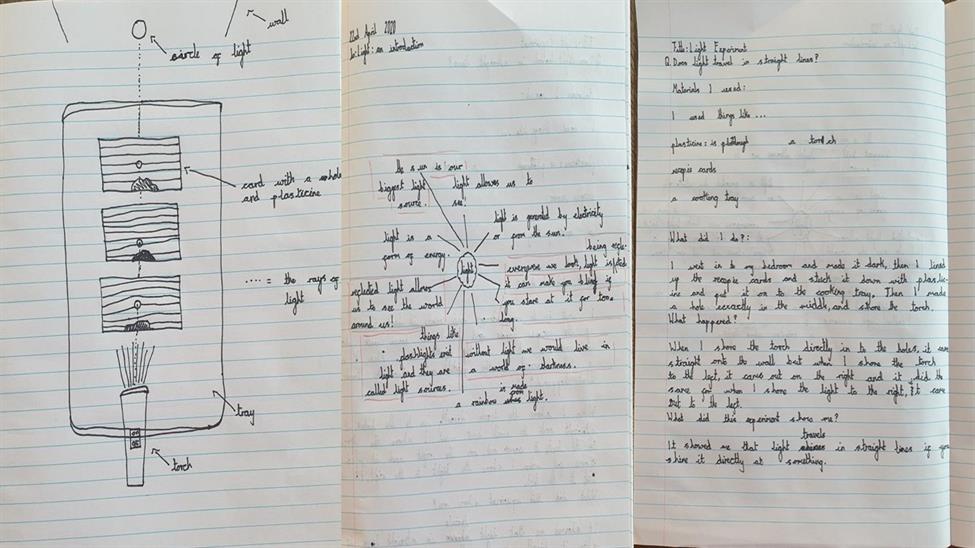 wall
circle of light
card with a whole
and plasticine
.... = the rays of
light
tray
torch
22nd April 2020
Lo: Light: an introduction
the sun is our
biggest light
source.
light allows us to
see!
light is generated by electricity
or from the sun.
light is a
form of energy.
light
being refle-
everywhere we look, light is
it can make you blind if
you stare at it for too
long.
reflected light allows
us to see the world
around us!
things like
flashlights emit
light and they are
called light sources.
without light we would live in
a world of darkness.
is made
a rainbow from light.
Title: Light Experiment
Q. Does light travel in straight lines?
Materials I used:
I used things like ...
plasticine: is playdough
a torch
recipie cards
a cooking tray
What did I do?:
I went in to my bedroom and made it dark, then I lined
up the recipie cards and stuck it down with plastic-
ine and put it on to the cooking tray. Then I made
a hole exactly in the middle, and shone the torch.
What happened?
When I shone the torch directly in to the holes, it came
straight onto the wall but when I shone the torch
to the left, it comes out on the right and it did the
same just when I shone the light to the right, it came
out to the left.
What did this experiment show me?
travels
It showed me that light in straight lines if you
shine it directly at something.